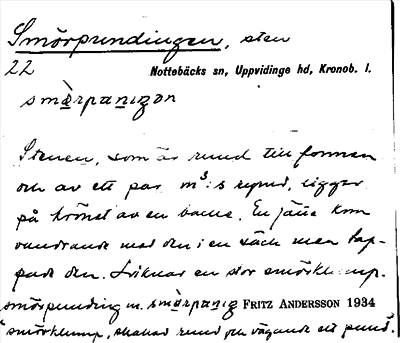 Smörpundingen, sten
22 Nottebäcks sn, Uppvidinge hd, Kronob. l.
smörpaniŋən
Stenen, som är rund till formen
och av ett par m³:s rymd, ligger
på krönet av en backe. En jätte kom
vandrande med den i en säck men tap-
pade den. Liknar en stor smörklump.
smörpunding m. FRITZ ANDERSSON 1934
"smörklump, skakad rund och vägande ett pund".